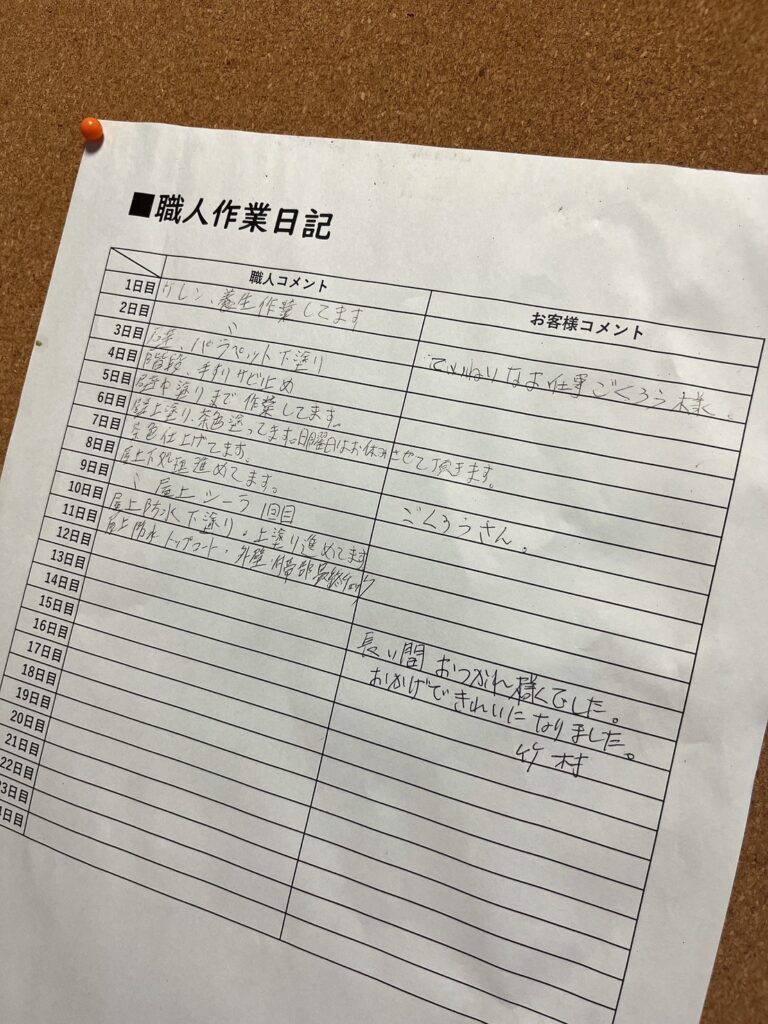 ■職人作業日記
職人コメント
お客様コメント
1日目 ケレン、養生作業してます
2日目 〃
3日目 パラペット下塗り
4日目 階段、手すりサビ止め
ていねいなお仕事ごくろう様。
5日目 中塗りまで作業してます。
6日目 壁上塗り、茶色塗ってます。日曜日はお休みさせて頂きます。
7日目 茶色仕上げてます。
8日目 屋上下処理進めてます。
9日目 〃 屋上シーラ 1回目
ごくろうさん。
10日目 屋上防水下塗り・上塗り進めてます
11日目 屋上防水トップコート・外壁・
12日目
13日目
14日目
長い間おつかれ様でした。
15日目
おかげできれいになりました。
16日目
竹村
17日目
18日目
19日目
20日目
21日目
22日目
3日目
日目